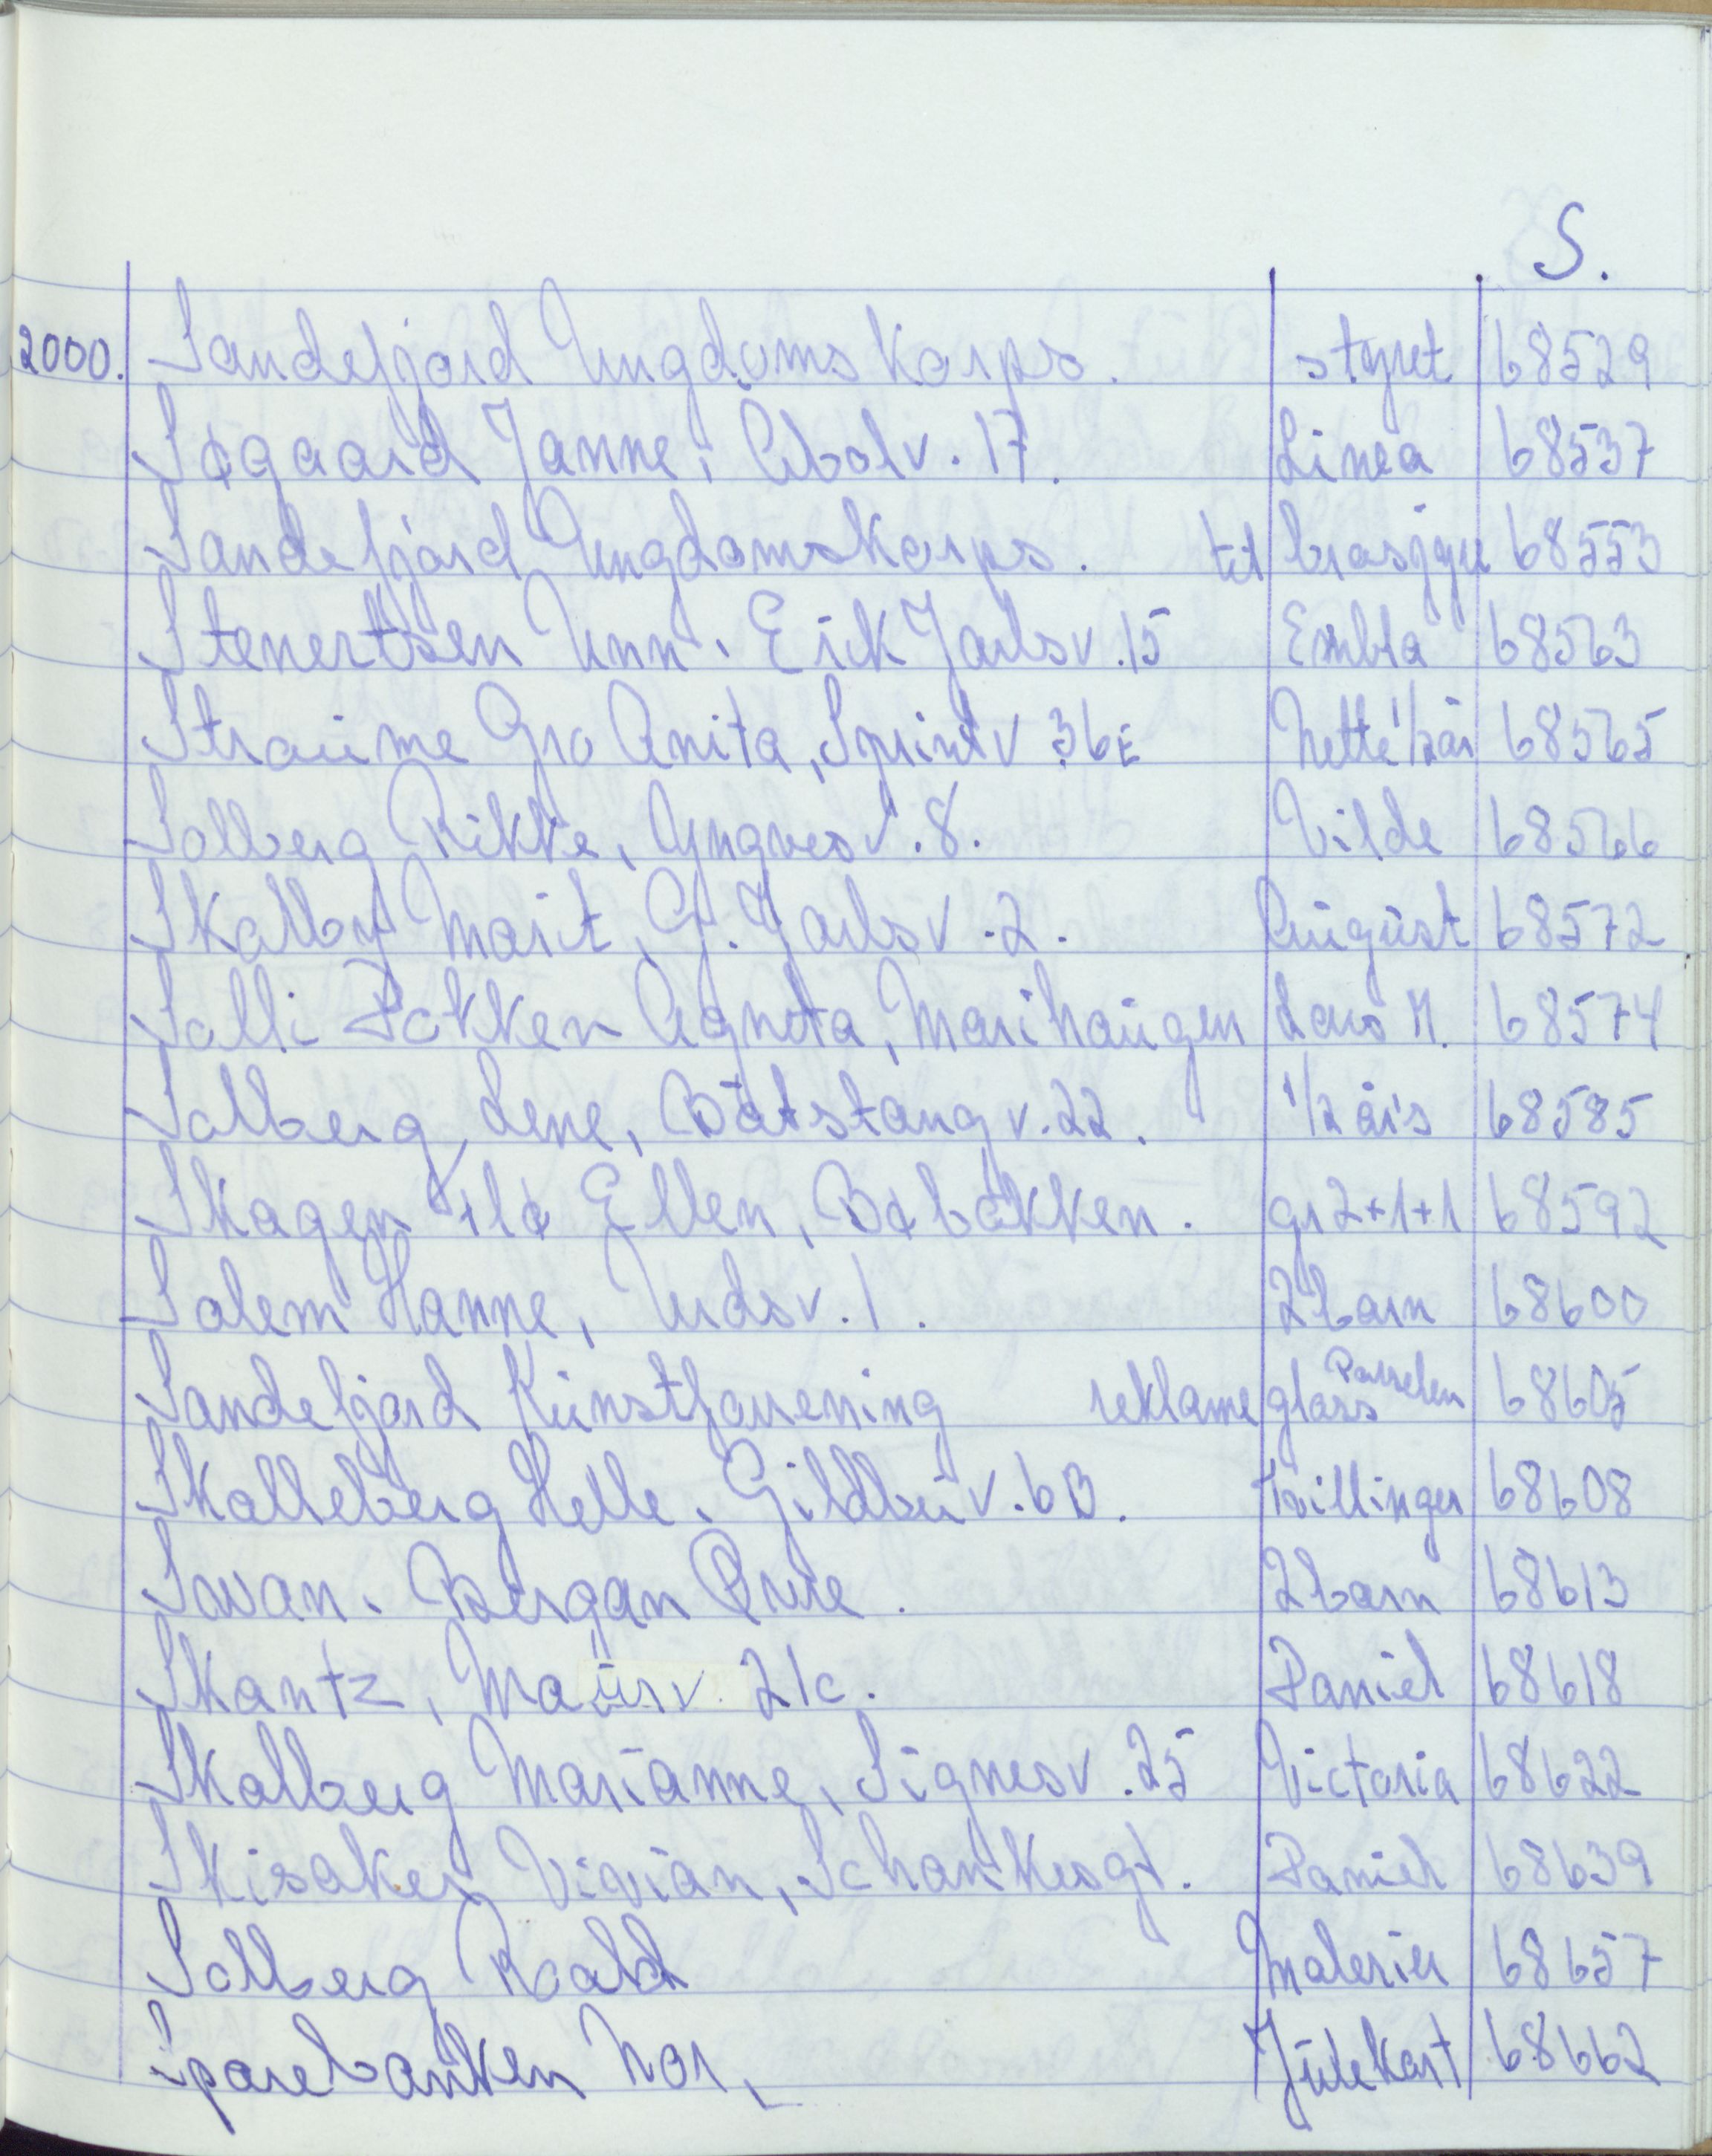 S.
2000. Sandefjord Ungdomskorps. styret 68529
Søgaard Janne, Ibolv. 17. Linea 68537
Sandefjord Ungdomskorps. til brosjyre 68553
Stenertsen Unn. Eirik Jarlsv. 15 Embla 68563
Straume Gro Anita, Sprintv 36E Nette 1/2 år 68565
Solberg Rikke, Yngvesv. 8. Vilde 68566
Skalby Marit, G. Jarlsv. 2. August 68572
Solli Bakken Agneta, Marihaugen Lars M. 68574
Solberg Lene, Båtstangv. 22. 1/2 års 68585
Skagen Ellen, Bøbakken. gr 2+1+1 68592
Solem Hanne, Urdsv. 1. 2 barn 68600
Sandefjord Kunstforening reklame glass Porselen 68605
Skalleberg Helle. Gildbuv. 6B. Tvillinger 68608
Svvan. Bergan 2 barn 68613
Skantz, Maurv. 21c. Daniel 68618
Skalberg Marianne, Signesv. 25 Victoria 68622
Skisaker Vivian, Schankesgt. Daniel 68639
Solberg Roald Malerier 68657
Sparebanken Nor, Julekort 68662